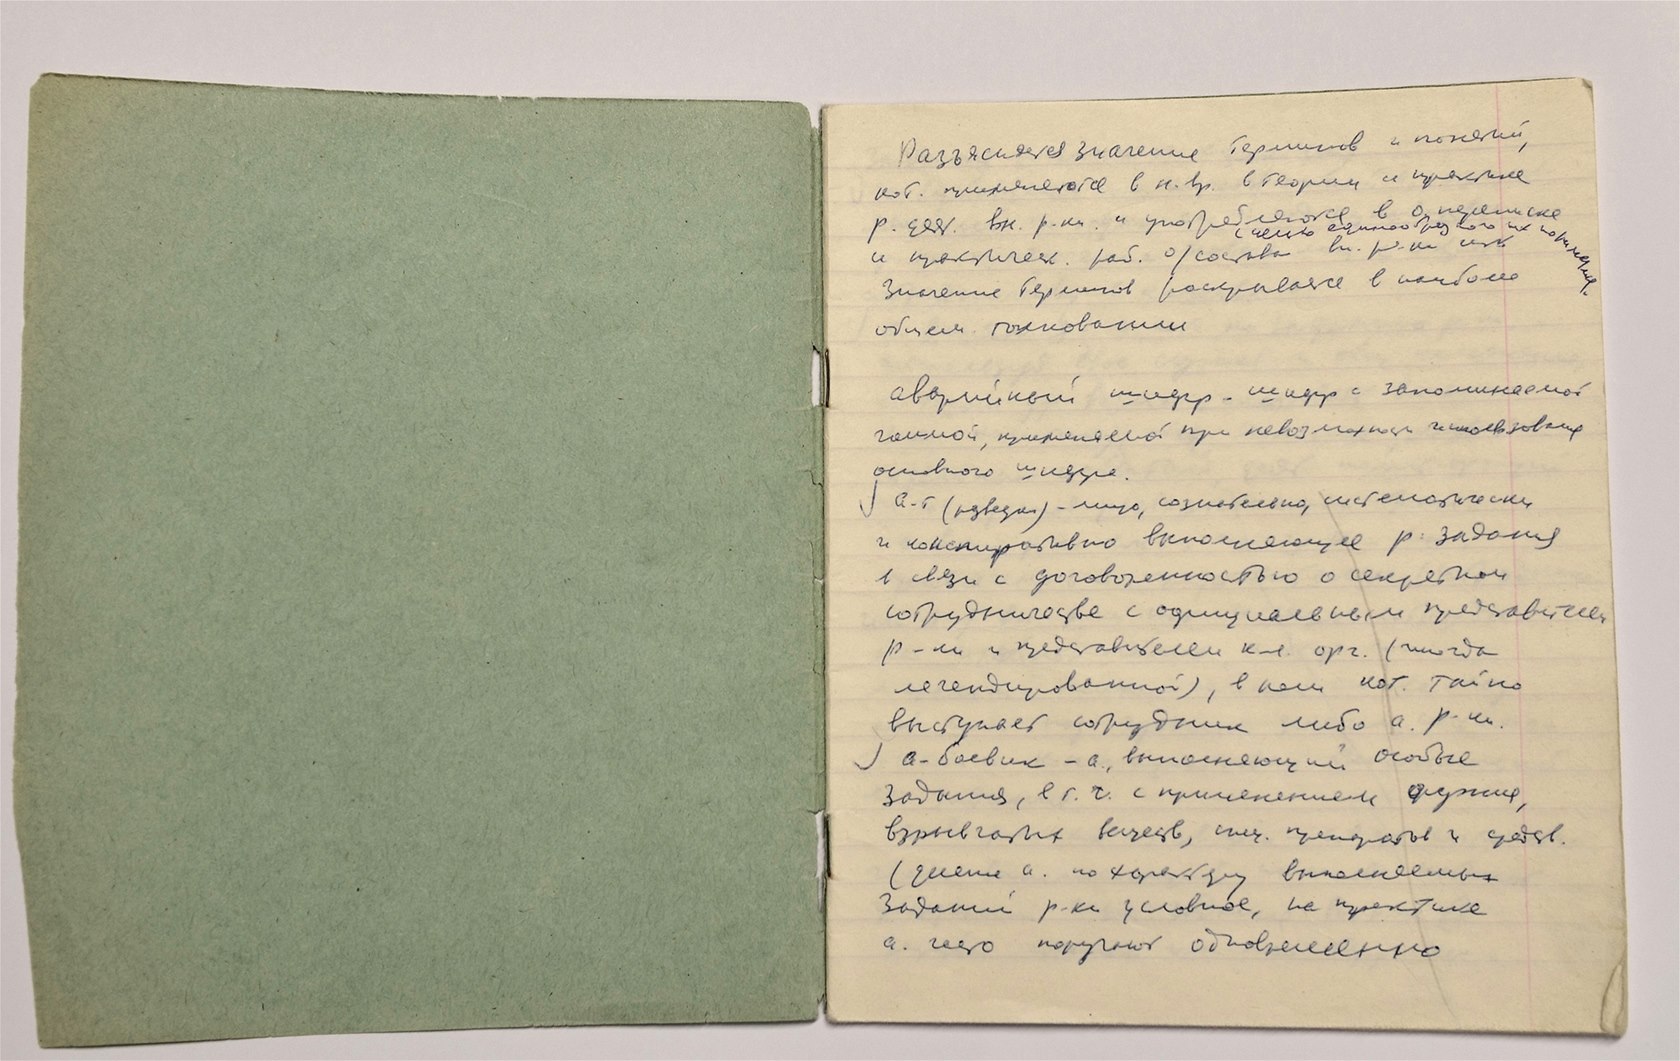 Разъясняется значение терминов и понятий,
кот. применяются в н.вр. в теории и практике
р. деят. вн. р-ки. и употребляются в о. переписке
с целью единообразного их понимания.
и практическ. раб. о/состава вн. р-ки
Значение терминов раскрывается в наиболее
общем. толковании
аварийный шифр - шифр с запоминаемой
гаммой, применяемой при невозможности использования
основного шифра.
а-т (разведки) - лицо, сознательно, систематически
и конспиративно выполняющее р. задания
в связи с договоренностью о секретном
сотрудничестве с официальным представителем
р-ки и представителем к-л. орг. (иногда
легендированной), в кот. тайно
выступает сотрудник либо а. р-ки.
а-боевик - а., выполняющий особые
задания, в т.ч. с применением оружия,
взрывчатых веществ, спец. препаратов и средств.
(деление а. по характеру выполняемых
заданий р-ки условное, на практике
а. часто поручают одновременно